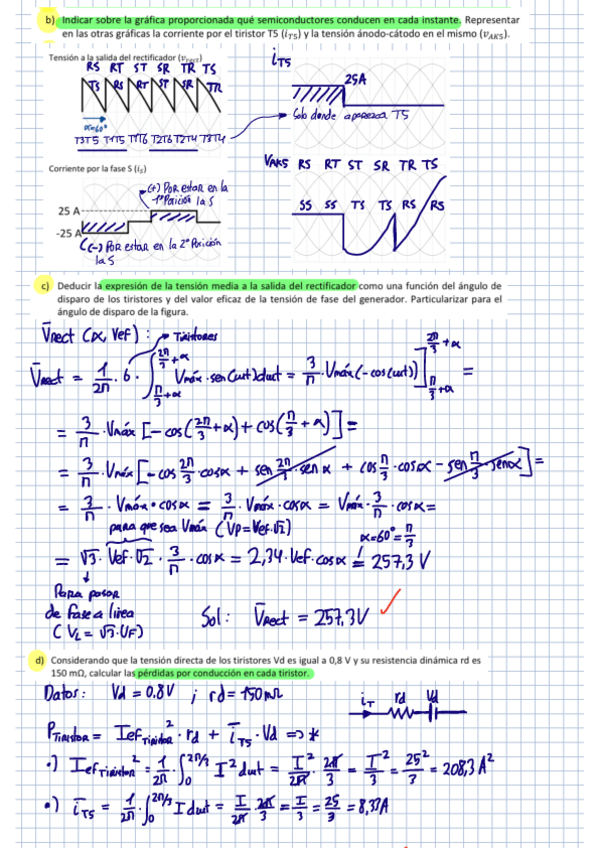 b) Indicar sobre la gráfica proporcionada qué semiconductores conducen en cada instante. Representar
en las otras gráficas la corriente por el tiristor T5 (i_T5) y la tensión ánodo-cátodo en el mismo (v_AK5).
Tensión a la salida del rectificador (v_rect)
RS RT ST SR TR TS
TS RS RT ST SR TR
α=60°
T3T5 T1T5 T1T6 T2T6 T2T4 T3T4
i_T5
25A
Solo donde aparezca T5
Corriente por la fase S (i_S)
(+) POR estar en la
1ª Posición la S
25 A
-25 A
(-) POR estar en la 2ª Posición
la S
V_AK5 RS RT ST SR TR TS
SS SS TS TS RS RS
c) Deducir la expresión de la tensión media a la salida del rectificador como una función del ángulo de
disparo de los tiristores y del valor eficaz de la tensión de fase del generador. Particularizar para el
ángulo de disparo de la figura.
V̄rect (α, Vef) : Tiristores
V̄rect = 1/2π · 6 · ∫_{π/3+α}^{2π/3+α} Vmáx · sen(wt) dwt = 3/π · Vmáx (-cos(wt))]_{π/3+α}^{2π/3+α} =
= 3/π · Vmáx [-cos(2π/3+α) + cos(π/3+α)] =
= 3/π · Vmáx [-cos 2π/3 · cosα + sen 2π/3 · sen α + cos π/3 · cosα - sen π/3 · senα] =
= 3/π · Vmáx · cosα = 3/π · Vmáx · cosα = Vmáx · 3/π · cosα =
para que sea Vmáx (Vp=Vef·√2)
α=60°=π/3
= √3 · Vef · √2 · 3/π · cosα = 2,34 · Vef · cosα = 257,3 V
Para pasar
de fase a línea
(VL = √3·UF)
Sol: V̄rect = 257,3V ✓
d) Considerando que la tensión directa de los tiristores Vd es igual a 0,8 V y su resistencia dinámica rd es
150 mΩ, calcular las pérdidas por conducción en cada tiristor.
Datos: Vd = 0.8V ; rd = 150mΩ
i_T rd Vd
P_TIRISTOR = Ief_Tiristor² · rd + ī_T5 · Vd => *
•) Ief_Tiristor² = 1/2π · ∫_0^{2π/3} I² dwt = I²/2π · 2π/3 = I²/3 = 25²/3 = 208,3 A²
•) ī_T5 = 1/2π · ∫_0^{2π/3} I dwt = I/2π · 2π/3 = I/3 = 25/3 = 8,33A